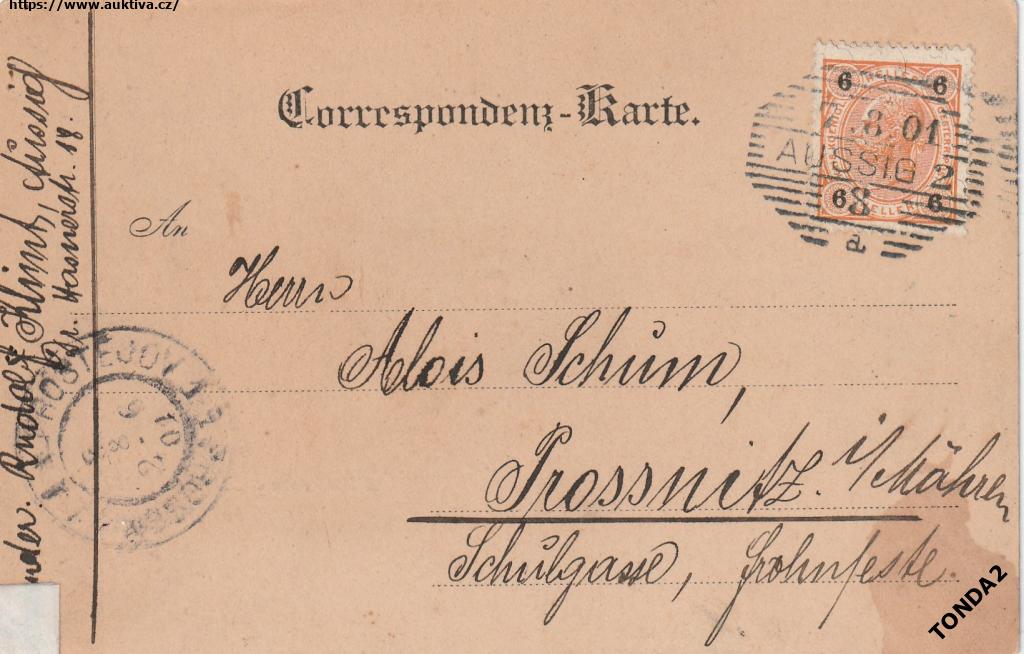 https://www.auktiva.cz/
Correspondenz-Karte.
6 6
8 01
AUSSIG 2
8
6 6
a
An
Herrn
Alois Schum,
Prossnitz. i/Mähren
Schulgasse, Frohnfeste.
Rudolf Klimt, Aussig
Dr. Hasnerstr. 18.
PROSTĚJOV 1
TONDA2